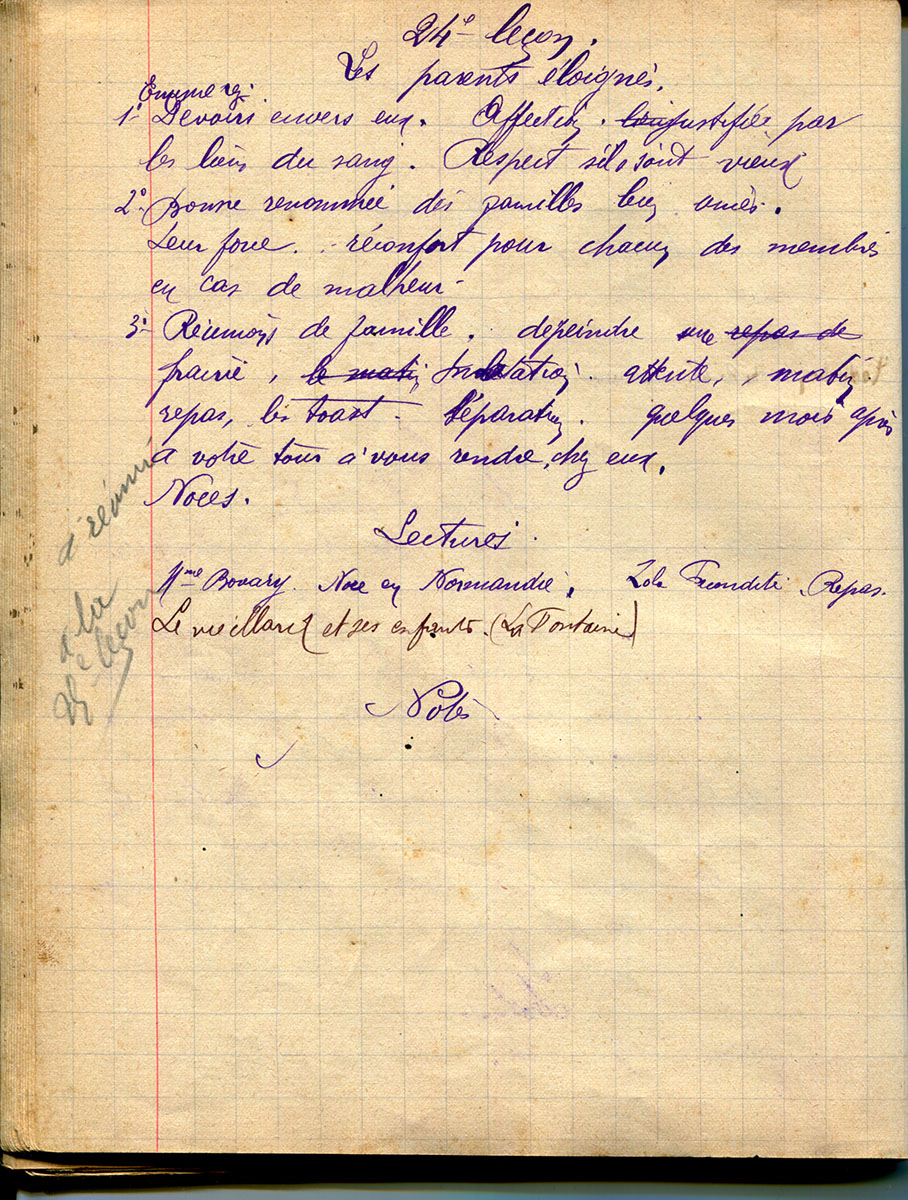 24e leçon.
Les parents éloignés.
Enumérez:
1º Devoirs envers eux. Affection. justifiée par
les liens du sang. Respect s'ils sont vieux
2º Bonne renommée des familles bien unies.
Leur force. réconfort pour chacun des membres
en cas de malheur.
3º Réunions de famille. dépeindre une repas de
frairie, le matin Invitation. attente, matin
repas, les toast. Séparation. quelques mois après
à votre tour à vous rendre chez eux.
Noces.
Lectures.
Mme Bovary. Noce en Normandie. Zola Fécondité. Repas.
Le vieillard et ses enfants. (La Fontaine)
Notes
à réunir
à la
25e leçon